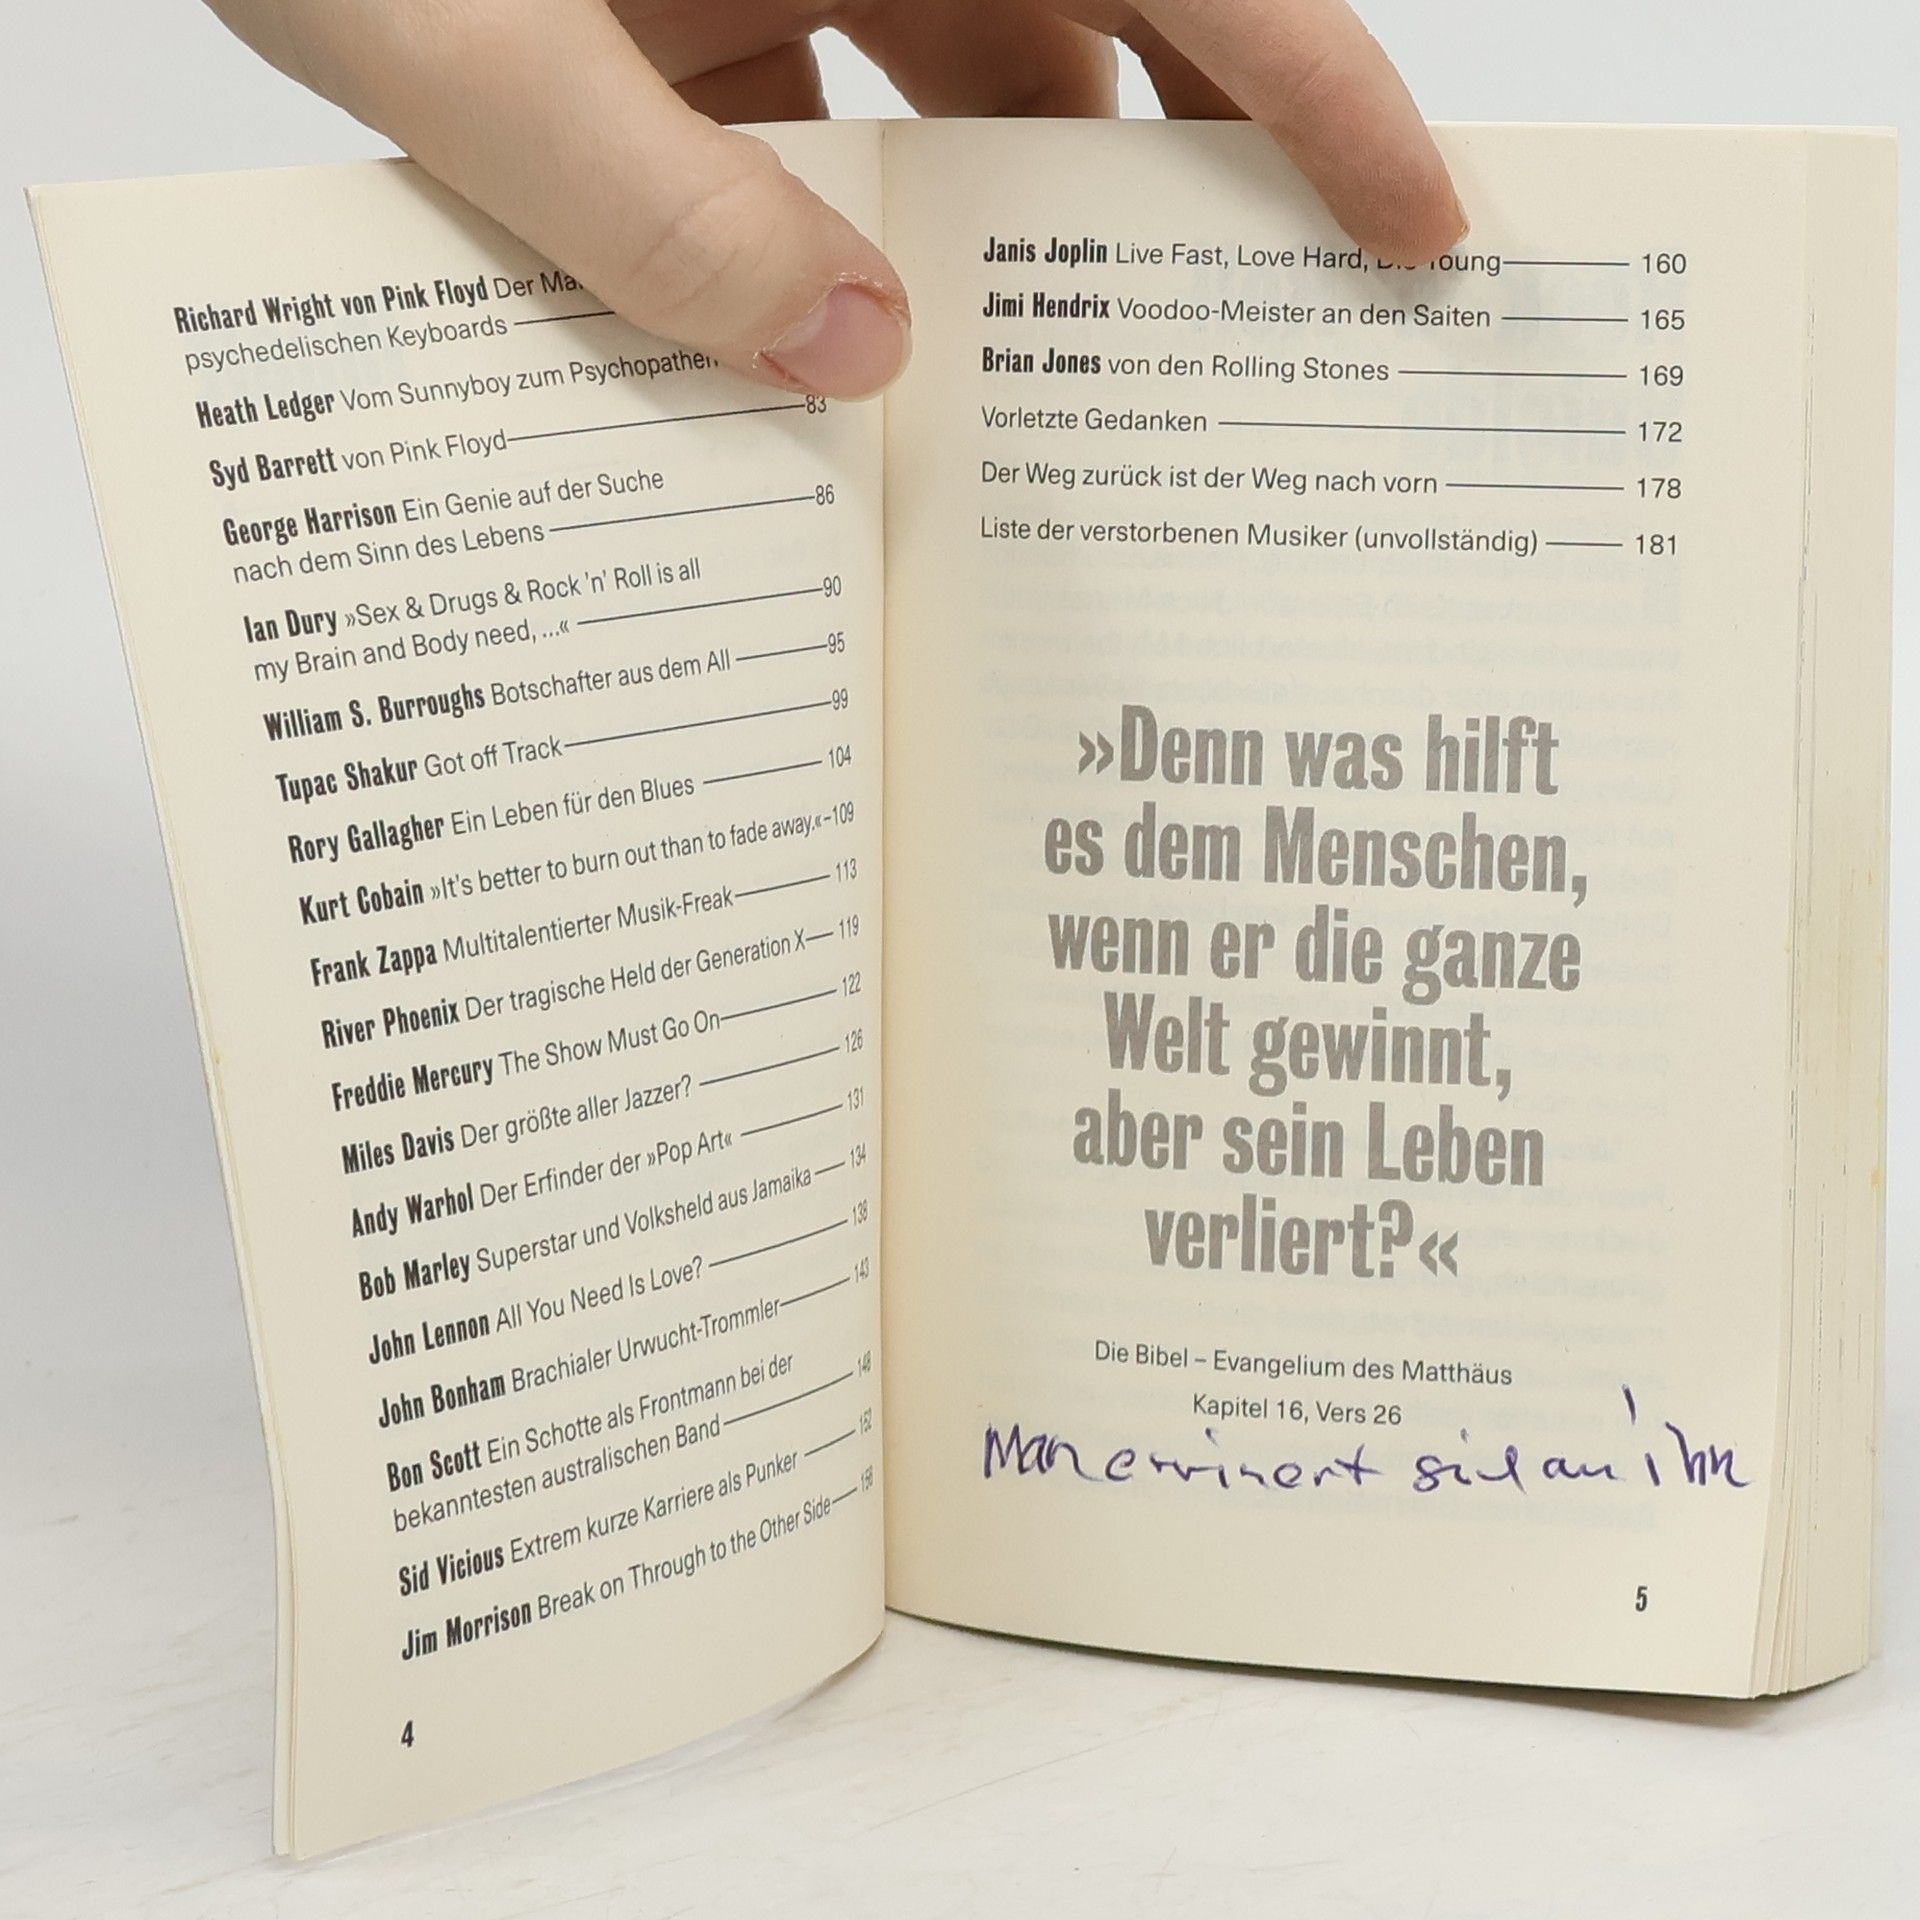 Richard Wright von Pink Floyd Der
psychedelischen Keyboards
Heath Ledger Vom Sunnyboy zum Psychopathen
Syd Barrett von Pink Floyd 83
George Harrison Ein Genie auf der Suche
nach dem Sinn des Lebens 86
Ian Dury »Sex & Drugs & Rock 'n' Roll is all
my Brain and Body need, ...« 90
William S. Burroughs Botschafter aus dem All 95
Tupac Shakur Got off Track 99
Rory Gallagher Ein Leben für den Blues 104
Kurt Cobain »It's better to burn out than to fade away.« 109
Frank Zappa Multitalentierter Musik-Freak 113
River Phoenix Der tragische Held der Generation X 119
Freddie Mercury The Show Must Go On 122
Miles Davis Der größte aller Jazzer? 126
Andy Warhol Der Erfinder der »Pop Art« 131
Bob Marley Superstar und Volksheld aus Jamaika 134
John Lennon All You Need Is Love? 138
John Bonham Brachialer Urwucht-Trommler 143
Bon Scott Ein Schotte als Frontmann bei der
bekanntesten australischen Band 148
Sid Vicious Extrem kurze Karriere als Punker 152
Jim Morrison Break on Through to the Other Side 156
4
Janis Joplin Live Fast, Love Hard, Young 160
Jimi Hendrix Voodoo-Meister an den Saiten 165
Brian Jones von den Rolling Stones 169
Vorletzte Gedanken 172
Der Weg zurück ist der Weg nach vorn 178
Liste der verstorbenen Musiker (unvollständig) 181
»Denn was hilft
es dem Menschen,
wenn er die ganze
Welt gewinnt,
aber sein Leben
verliert?«
Die Bibel – Evangelium des Matthäus
Kapitel 16, Vers 26
Man erinnert sich an ihn
5